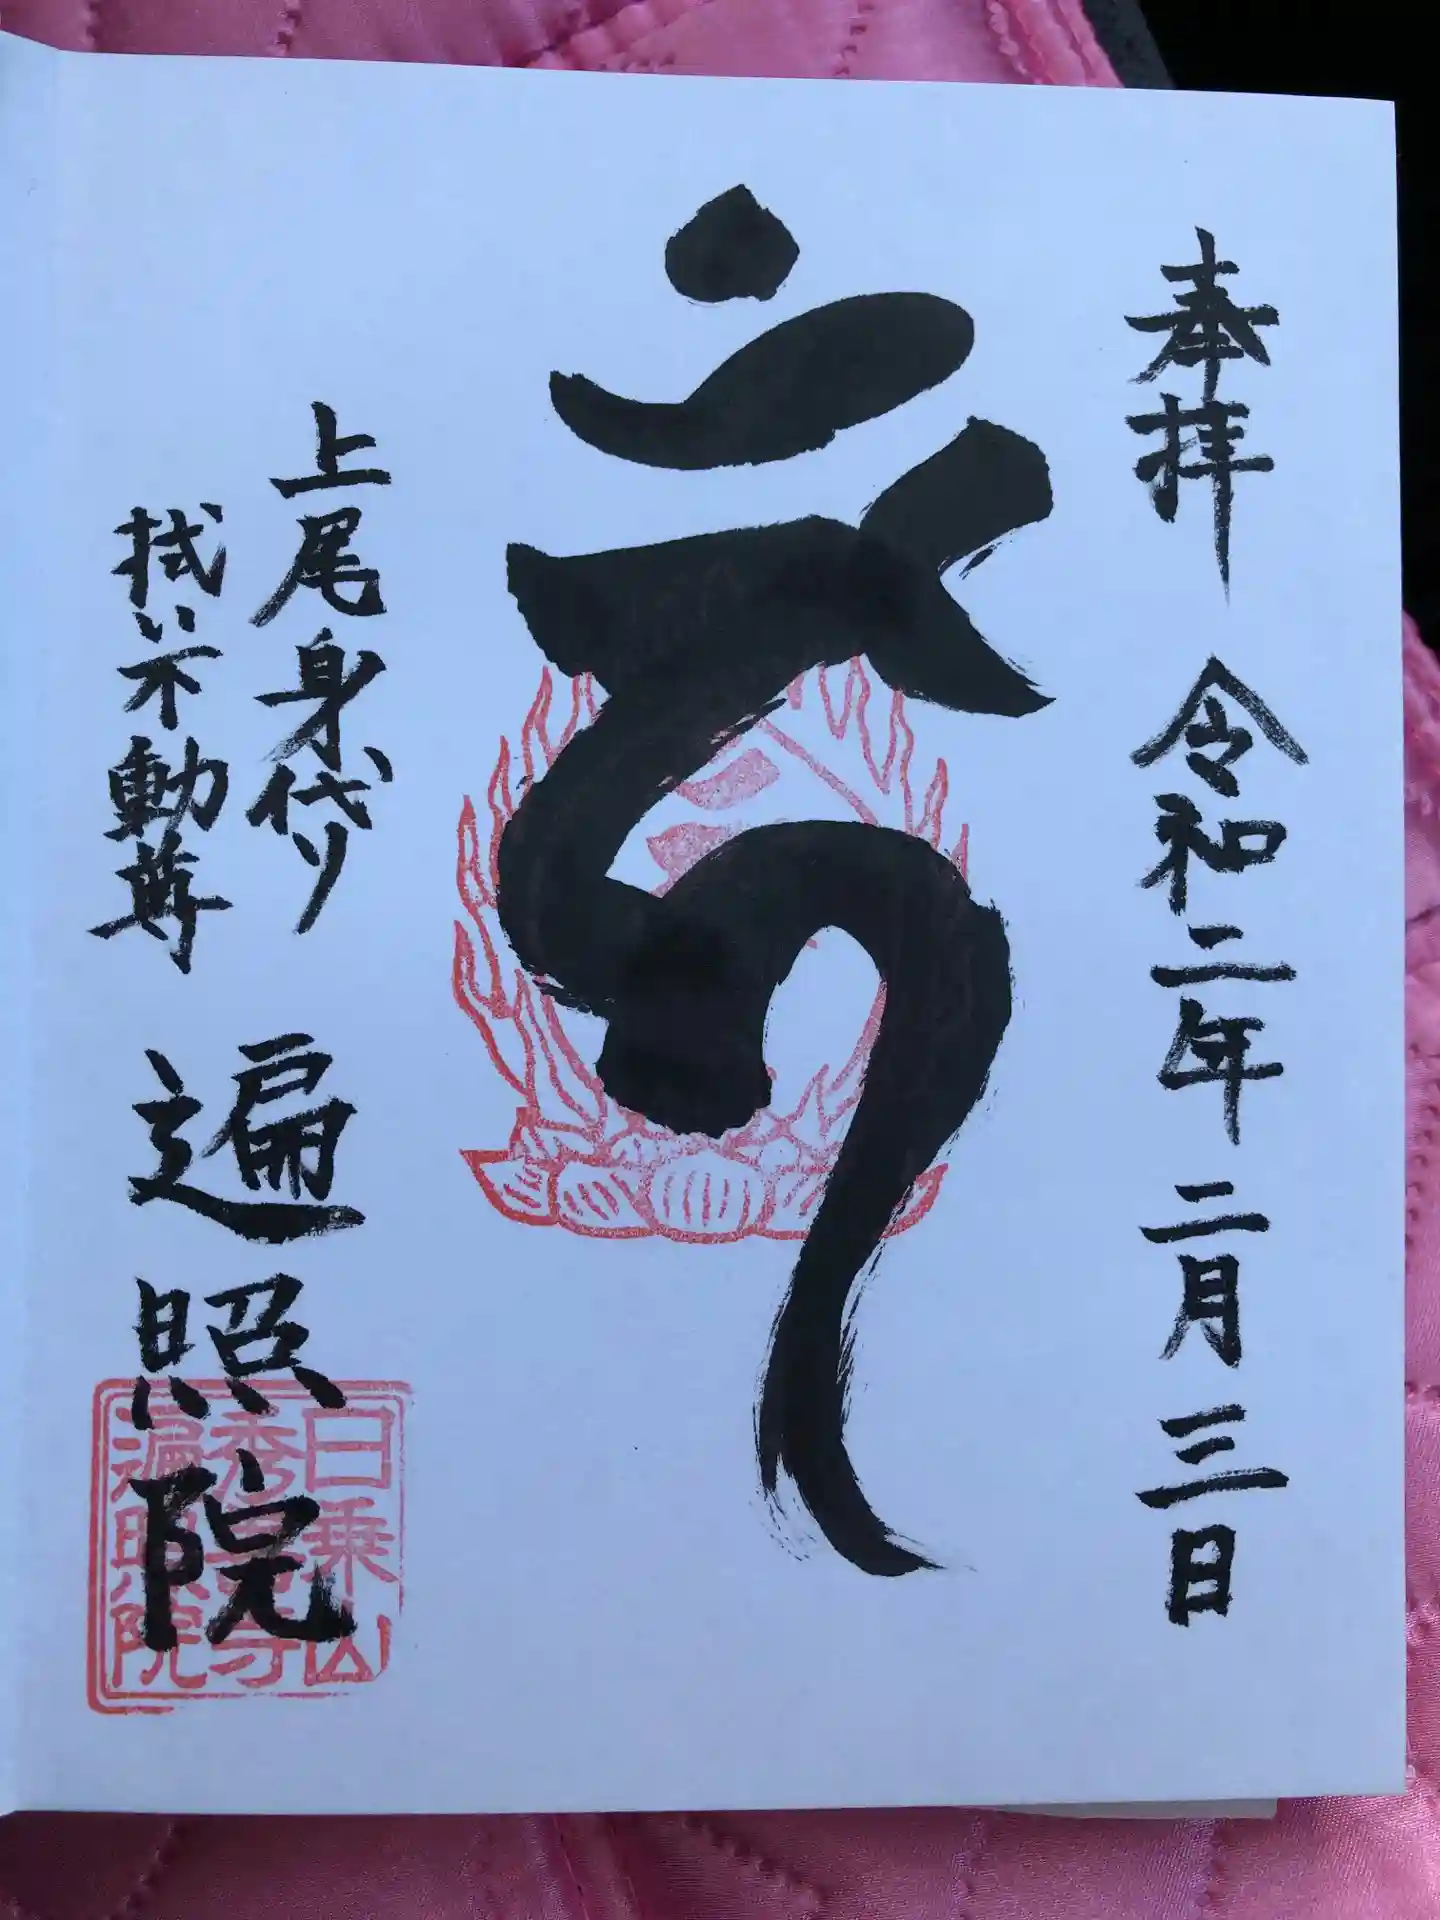 奉拝 令和二年 二月 三日
𑖮𑖿𑖦𑖯𑖽
上尾身代り
拭い不動尊
遍照院
日乗山
秀善寺
遍照院